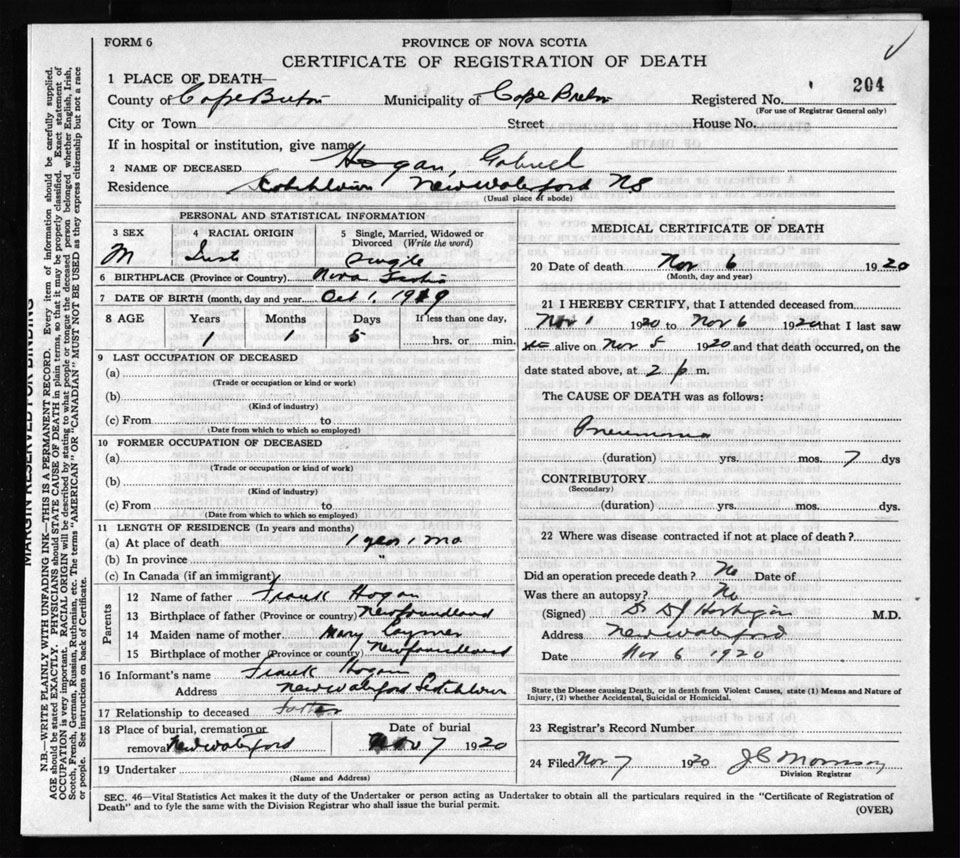 FORM 6
PROVINCE OF NOVA SCOTIA
CERTIFICATE OF REGISTRATION OF DEATH
204
1 PLACE OF DEATH—
County of Cape Breton Municipality of Cape Breton Registered No.
(For use of Registrar General only)
City or Town Street House No.
If in hospital or institution, give name
2 NAME OF DECEASED Hogan, Gabriel
Residence Scotchtown New Waterford NS
(Usual place of abode)
PERSONAL AND STATISTICAL INFORMATION
3 SEX 4 RACIAL ORIGIN 5 Single, Married, Widowed or Divorced (Write the word)
M Irish Single
6 BIRTHPLACE (Province or Country) Nova Scotia
7 DATE OF BIRTH (month, day and year) Oct 1, 1919
8 AGE Years Months Days If less than one day,
1 1 5 hrs. or min.
9 LAST OCCUPATION OF DECEASED
(a)
(Trade or occupation or kind or work)
(b)
(Kind of industry)
(c) From to
(Date from which to which so employed)
10 FORMER OCCUPATION OF DECEASED
(a)
(Trade or occupation or kind of work)
(b)
(Kind of industry)
(c) From to
(Date from which to which so employed)
11 LENGTH OF RESIDENCE (In years and months)
(a) At place of death 1 year 1 mo
(b) In province "
(c) In Canada (if an immigrant)
Parents
12 Name of father Frank Hogan
13 Birthplace of father (Province or country) Newfoundland
14 Maiden name of mother Mary
15 Birthplace of mother (Province or country) Newfoundland
16 Informant's name Frank Hogan
Address New Waterford Scotchtown
17 Relationship to deceased Father
18 Place of burial, cremation or removal New Waterford Date of burial Nov 7 1920
19 Undertaker
(Name and Address)
MEDICAL CERTIFICATE OF DEATH
20 Date of death Nov 6 1920
(Month, day and year)
21 I HEREBY CERTIFY, that I attended deceased from
Nov 1 1920 to Nov 6 1920 that I last saw
alive on Nov 5 1920 and that death occurred, on the
date stated above, at 2 p m.
The CAUSE OF DEATH was as follows:
Pneumonia
(duration) yrs. mos. 7 dys
CONTRIBUTORY
(Secondary)
(duration) yrs. mos. dys.
22 Where was disease contracted if not at place of death?
Did an operation precede death? No Date of
Was there an autopsy? No
(Signed) M.D.
Address New Waterford
Date Nov 6 1920
State the Disease causing Death, or in death from Violent Causes, state (1) Means and Nature of
Injury, (2) whether Accidental, Suicidal or Homicidal.
23 Registrar's Record Number
24 Filed Nov 7 1920 J C Morrison
Division Registrar
SEC. 46—Vital Statistics Act makes it the duty of the Undertaker or person acting as Undertaker to obtain all the particulars required in the "Certificate of Registration of
Death" and to fyle the same with the Division Registrar who shall issue the burial permit.
(OVER)
MARGIN RESERVED FOR BINDING
N.B.—WRITE PLAINLY WITH UNFADING INK—THIS IS A PERMANENT RECORD. Every item of information should be carefully supplied.
AGE should be stated EXACTLY. PHYSICIANS should STATE CAUSE OF DEATH in plain terms, so that it may be properly classified. Exact statement of
OCCUPATION is very important. RACIAL ORIGIN will be described by stating to what people or tongue the deceased person belonged whether English, Irish,
Scotch, French, German, Russian, Ruthenian, etc. The terms "AMERICAN" OR "CANADIAN" MUST NOT BE USED as they express citizenship but not a race
or people. See instructions on back of Certificate.